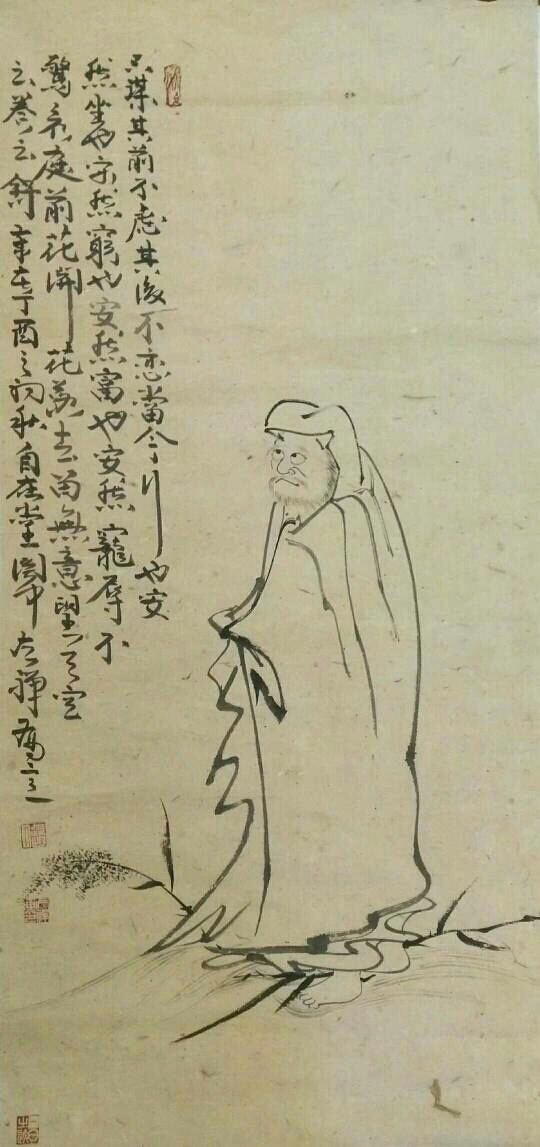 不谋其前不慮其後不恋當今行也安
然坐也安然窮也安然富也安然寵辱不
驚看庭前花開花落去留無意望天空
雲卷雲舒 丁酉之初秋自在堂